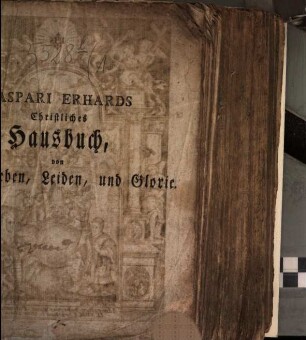 ASPARI ERHARDS
Christliches
Hausbuch,
von
eben, Leiden, und Glorie.